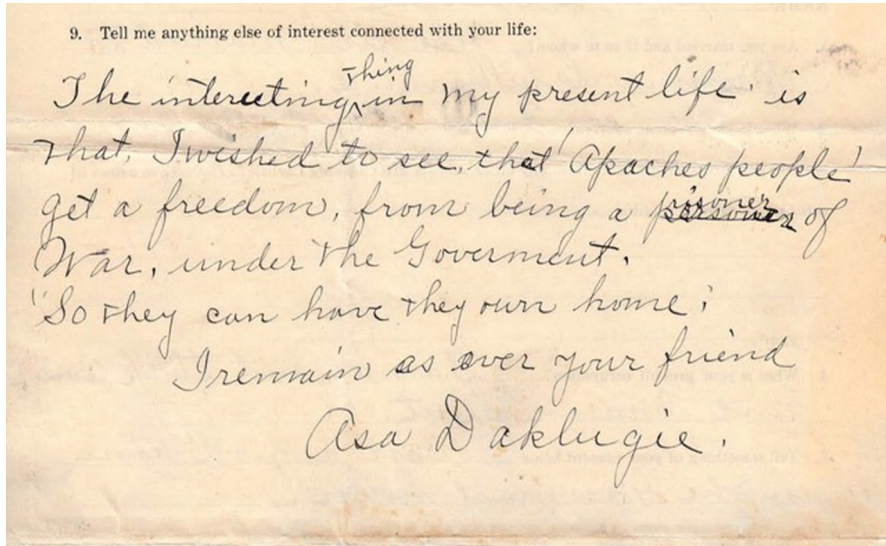 9. Tell me anything else of interest connected with your life:
The interesting thing in my present life is
that, I wished to see, that 'Apaches people'
get a freedom, from being a prisoner of
War, under the Goverment.
"So they can have they own home;
I remain as ever your friend
Asa Daklugie.